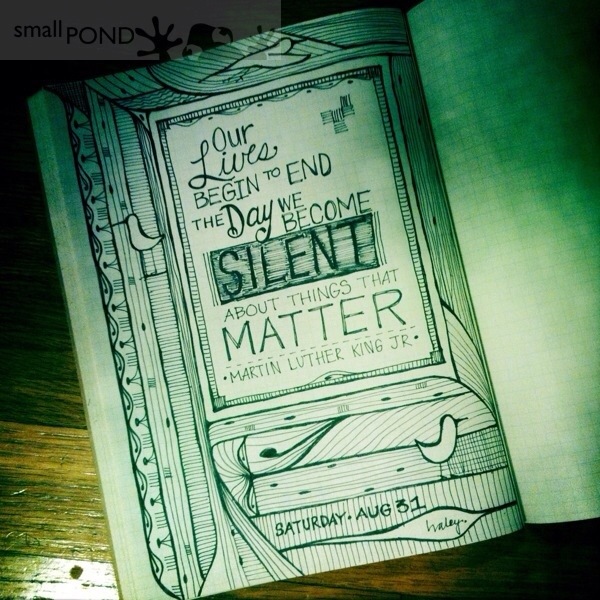 small POND
Our
Lives
BEGIN TO END
THE Day WE
BECOME
SILENT
ABOUT THINGS THAT
MATTER
• MARTIN LUTHER KING JR •
SATURDAY • AUG 31
haley.